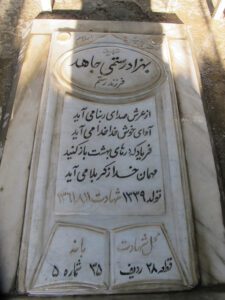 بهزاد رستمی جاهد
فرزند رستم
از عرش صدای ربنا می آید
آوای خوش خدا خدا می آید
فریاد که درهای بهشت باز کنید
مهمان خدا ز کربلا می آید
تولد ۱۳۳۹ شهادت ۱۳۶۱/۸/۱
گل شهادت
باند
قطعه ۲۸ ردیف
۳۵ شماره ۵